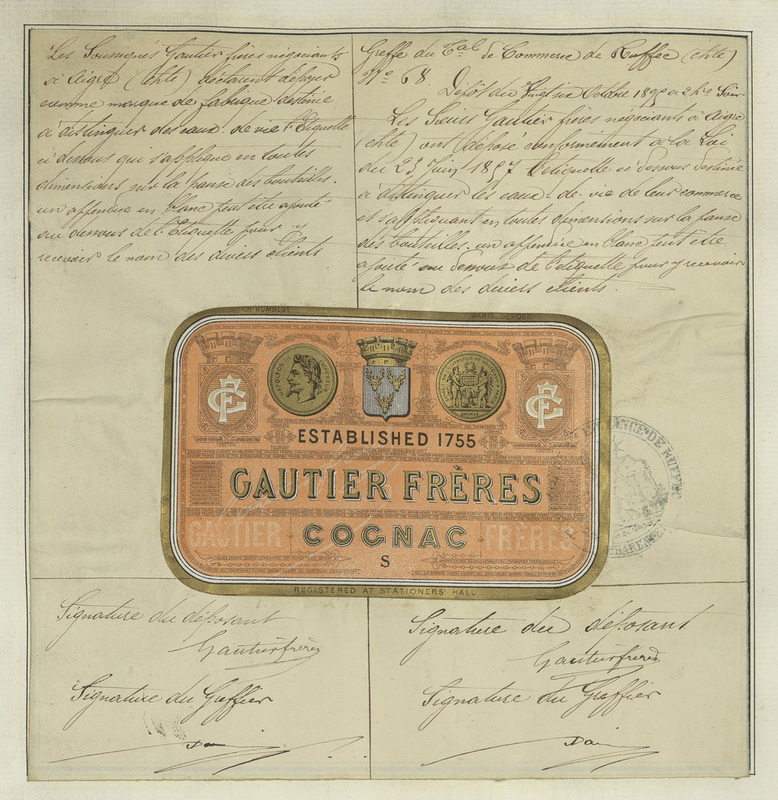 Les Soussignés Gautier frères négociants
à Aigre (Chte) déclarent déposer
comme marque de fabrique destinée
à distinguer des eaux-de-vie l'Etiquette
ci dessous qui s'applique en toutes
dimensions sur la panse des bouteilles.
un appendice en blanc peut être ajouté
au dessous de l'Etiquette pour y
recevoir le nom des divers clients
Greffe du Cal de Commerce de Ruffec (Chte)
No 68.
Dépôt du Octobre à 2 hs Soir
Les Sieurs Gautier frères négociants à Aigre
(Chte) ont déposé conformément à la Loi
du 23 Juin 1857 l'etiquette ci dessous destinée
à distinguer les eaux-de-vie de leur commerce
et s'appliquant en toutes dimensions sur la panse
des bouteilles. un appendice en blanc peut être
ajouté au dessous de l'etiquette pour y recevoir
le nom des divers clients.
ROMBLOT PARIS. DÉPOSÉ
NAPOLEON III EMPEREUR
GF
GF
ESTABLISHED 1755
GAUTIER FRÈRES
GAUTIER COGNAC FRÈRES
S
REGISTERED AT STATIONERS' HALL
DE RUFFEC
Signature du déposant
Gautier frères
Signature du Greffier
Signature du déposant
Gautier frères
Signature du Greffier